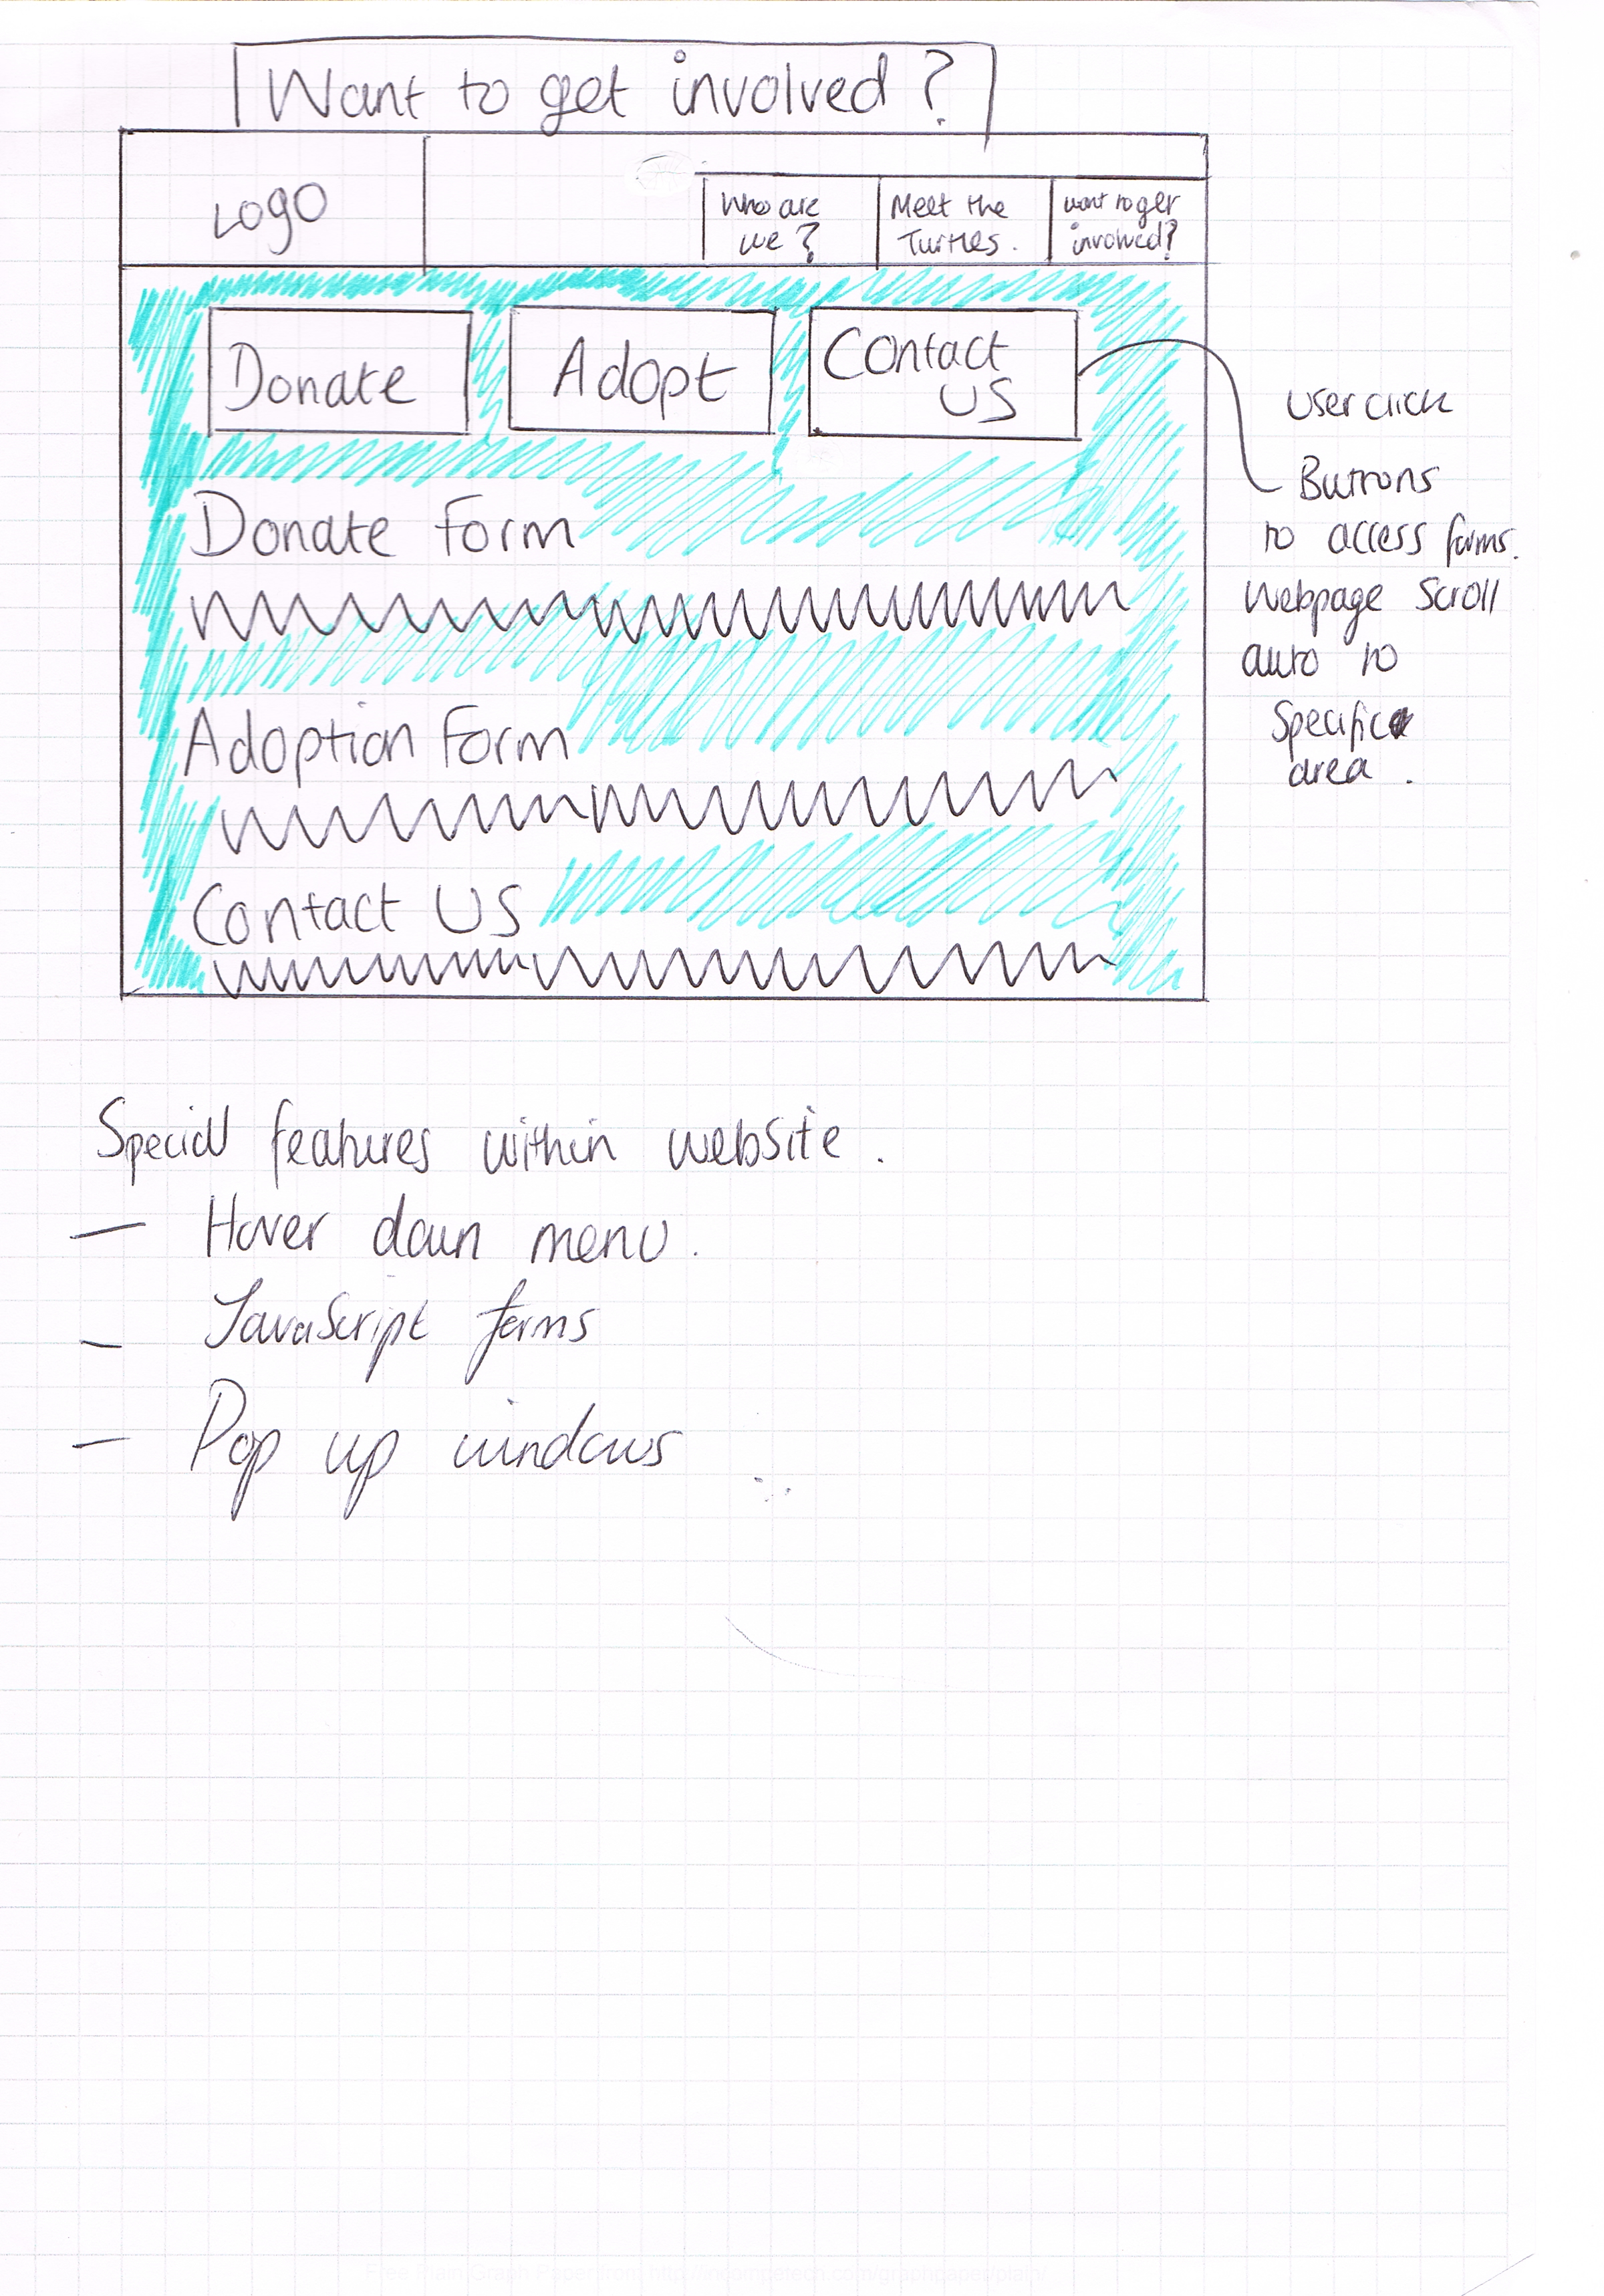 Want to get involved?
Logo
Who are
we?
Meet the
Turtles.
want to get
involved?
Donate
Adopt
Contact
US
User click
Buttons
to access forms.
Webpage Scroll
auto to
Specific
area.
Donate Form
Adoption Form
Contact US
Special features within website.
- Hover down menu.
- JavaScript forms
- Pop up windows